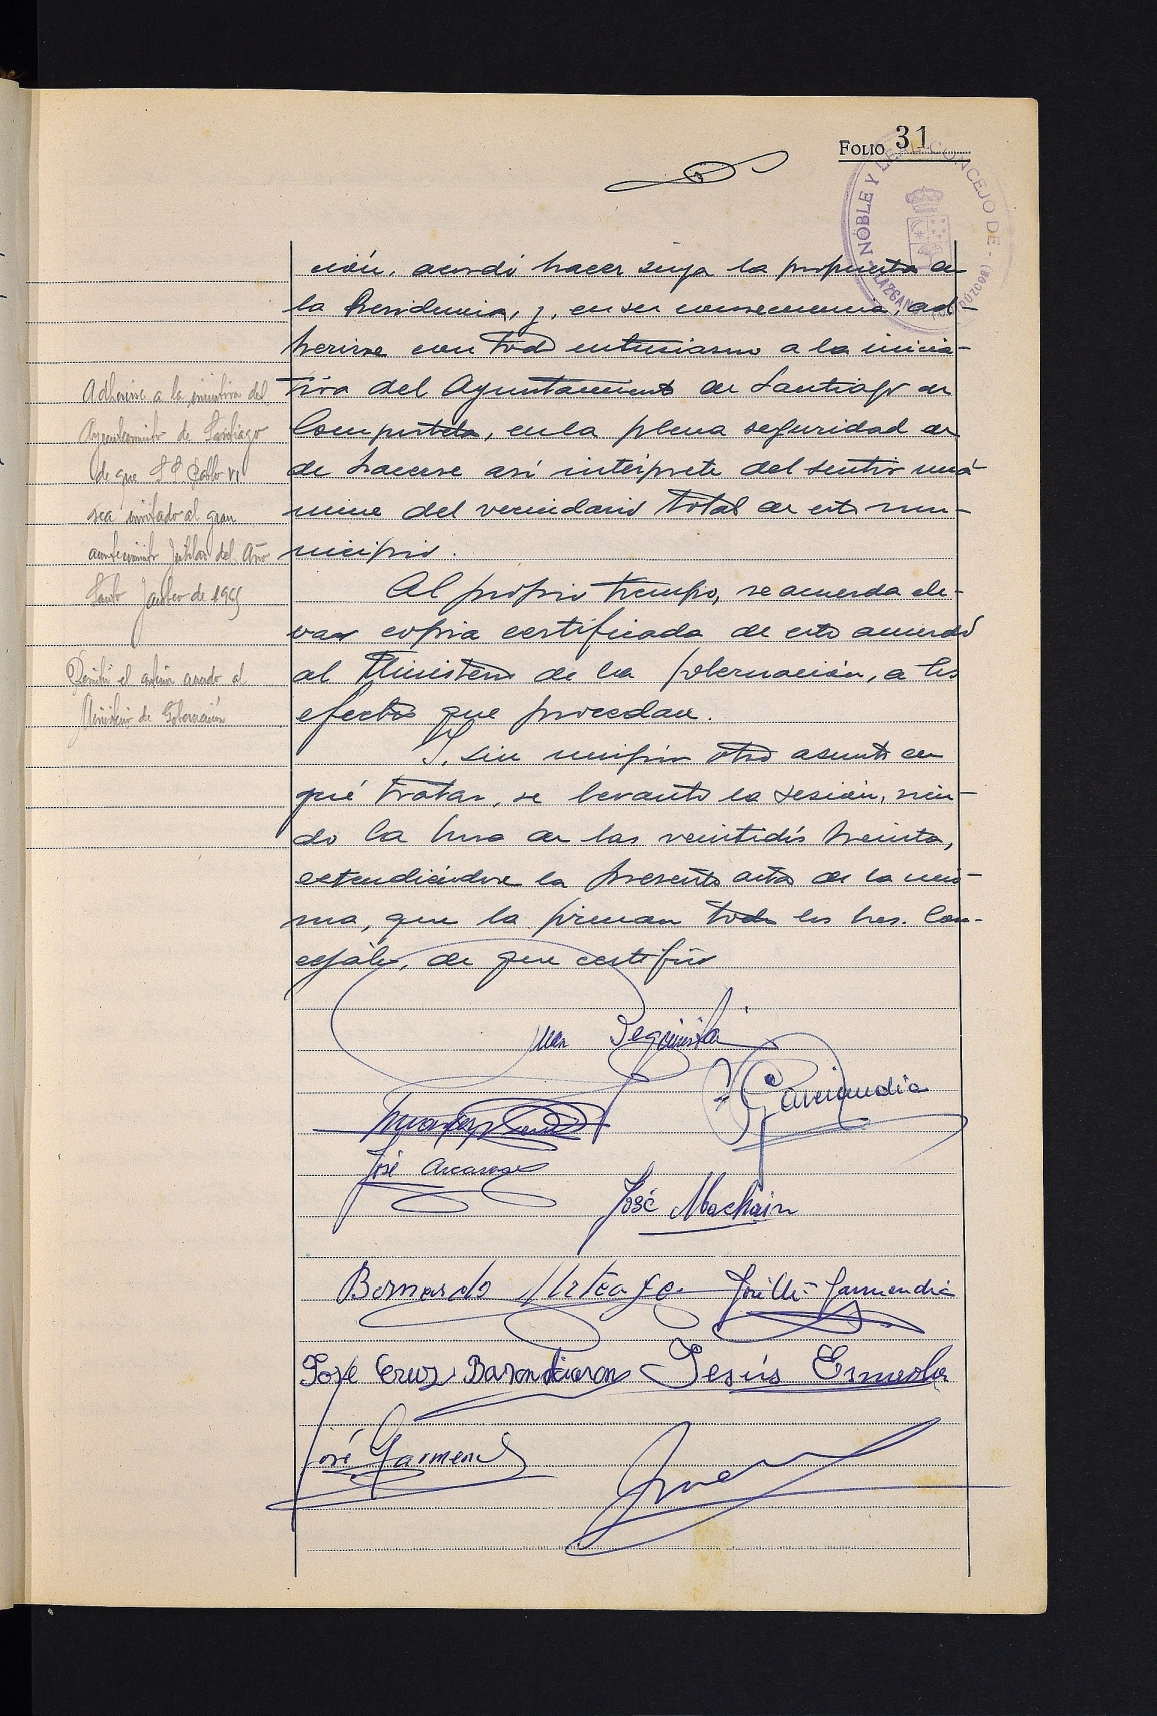 FOLIO 31
NOBLE Y LEAL CONCEJO DE
ción, acordó hacer suya la propuesta de
la Presidencia, y, en su consecuencia, ad-
herirse con todo entusiasmo a la inicia-
tiva del Ayuntamiento de Santiago de
Compostela, en la plena seguridad de
de hacerse así intérprete del sentir uná-
nime del vecindario total de este mu-
nicipio.
Al propio tiempo, se acuerda ele-
var copia certificada de este acuerdo
al Ministerio de la Gobernación, a los
efectos que procedan.
Y, sin ningún otro asunto en
qué tratar, se levantó la sesión, sien-
do la hora de las veintidós treinta,
extendiéndose la presente acta de la mis-
ma, que la firman todos los Sres. Con-
cejales, de que certifico
Adherirse a la iniciativa del
Ayuntamiento de Santiago
de que S.S. Pablo VI
sea invitado al gran
acontecimiento jubilar del Año
Santo Jacobeo de 1965
Remitir el anterior acuerdo al
Ministerio de Gobernación
Juan
Garciandia
José
José Machain
Bernardo Urteaga José Mª Garmendia
José Cruz Barandiaran Jesús
José Garmendia